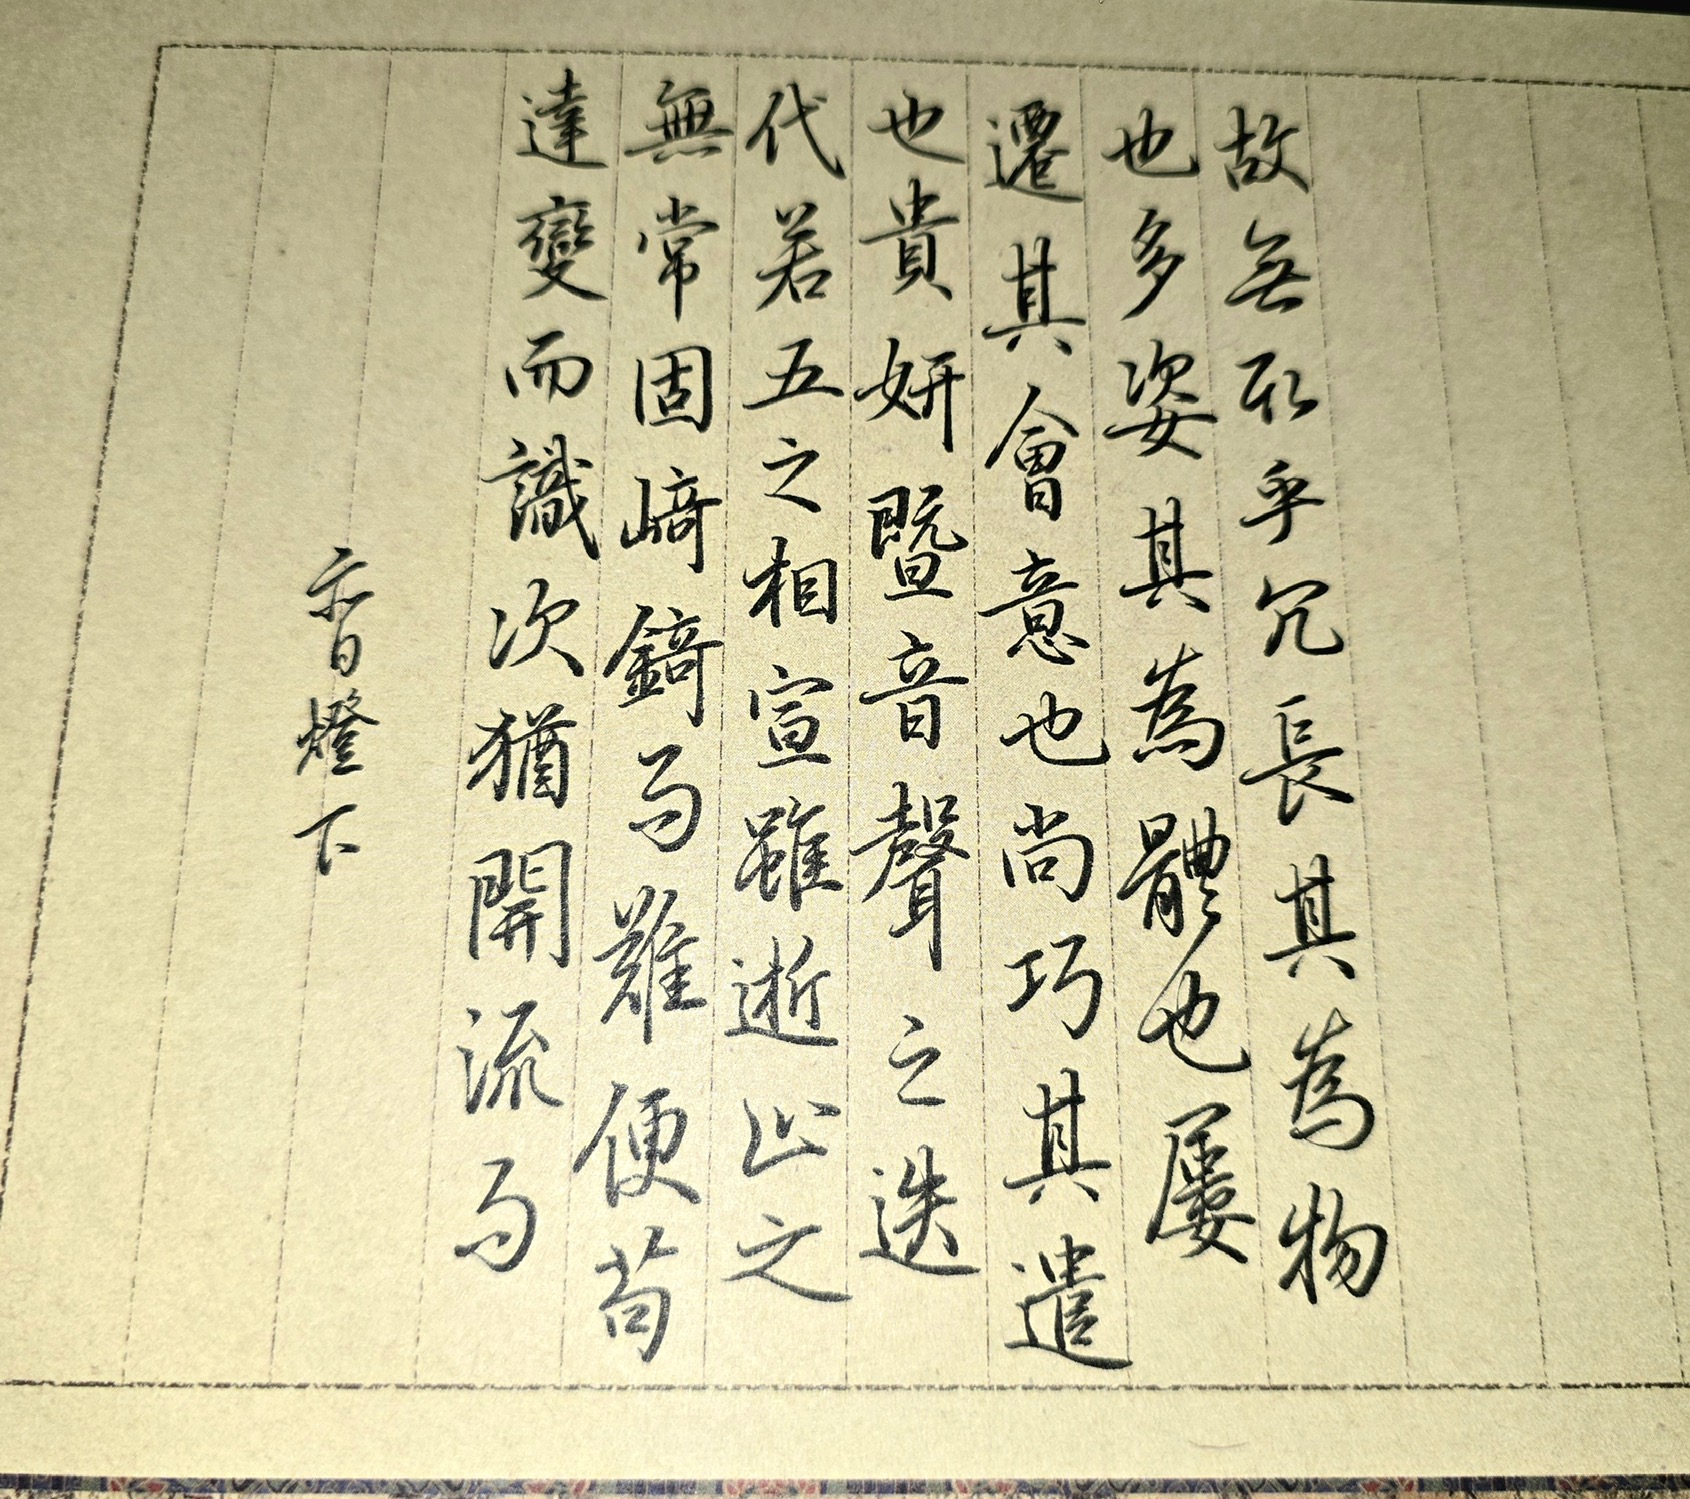 故无取乎冗長其為物
也多姿其為體也屢
遷其會意也尚巧其遣
也貴妍暨音聲之迭
代若五之相宣雖逝止之
無常固崎錡而難便苟
達變而識次猶開流而
香燈下